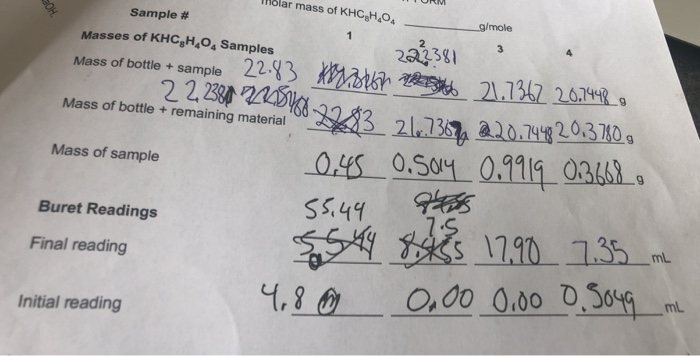 molar mass of KHC₈H₄O₄ g/mole
Sample # 1 2 3 4
Masses of KHC₈H₄O₄ Samples
222381
Mass of bottle + sample 22.83 21.7367 20.7448 g
22.238
Mass of bottle + remaining material 22.83 21.736 20.7448 20.3780 g
Mass of sample 0.45 0.5014 0.9919 0.3668 g
Buret Readings 55.44
7.5
Final reading 17.90 7.35 mL
Initial reading 4.8 0.00 0.00 0.5049 mL